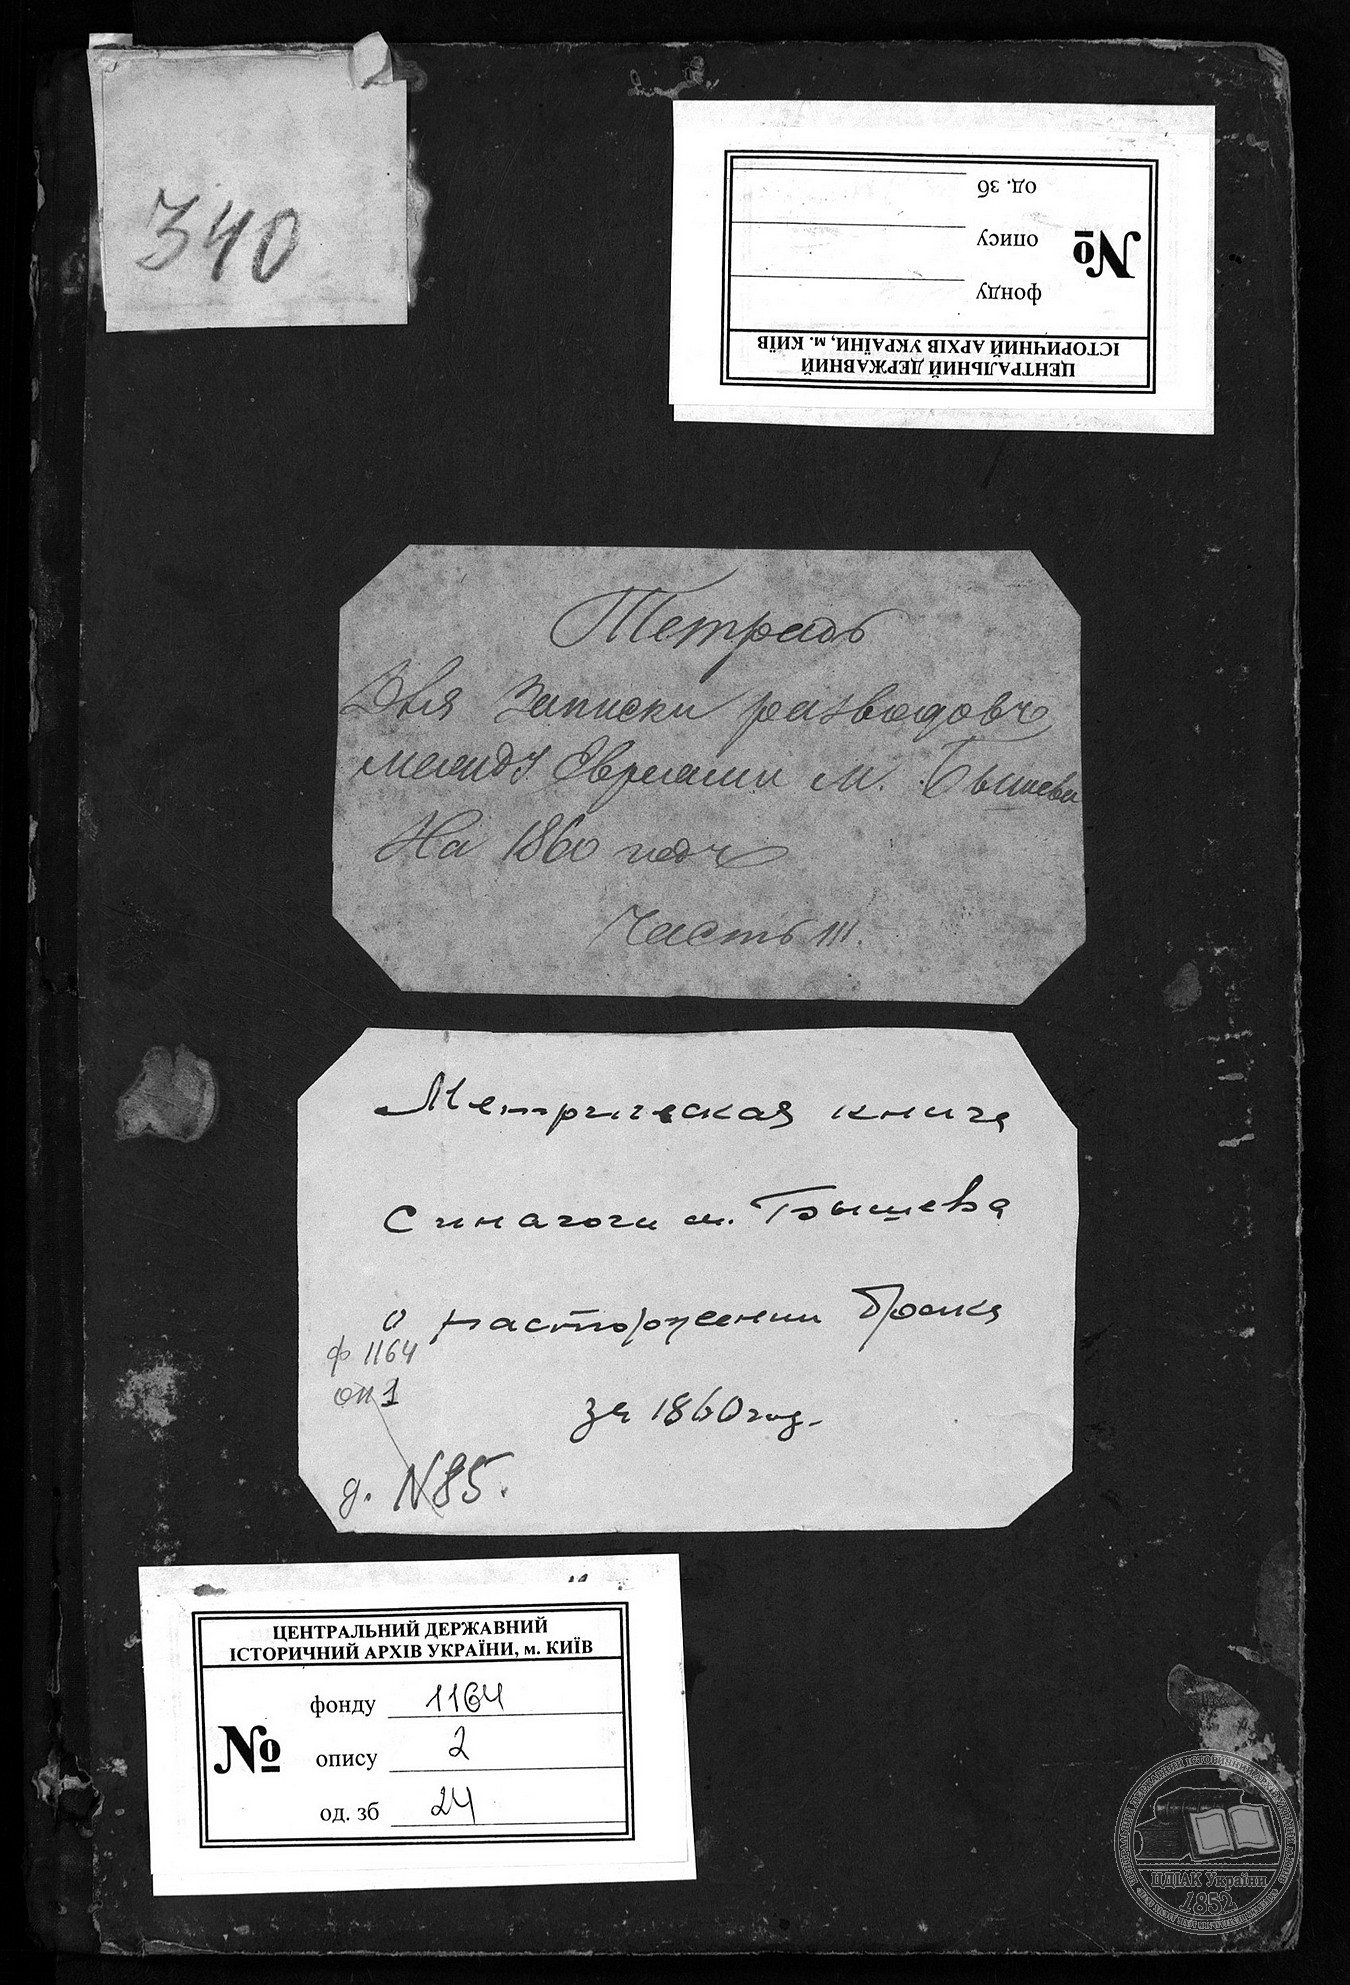 340
ЦЕНТРАЛЬНИЙ ДЕРЖАВНИЙ
ІСТОРИЧНИЙ АРХІВ УКРАЇНИ, м. КИЇВ
№
фонду
опису
од. зб
Тетрадь
Для Записки разводовъ
между Евреями м. Бышева
На 1860 годъ
Часть III.
Метрическая книга
синагоги м. Бышева
о расторжении брака
ф 1164
оп 1
за 1860 год.
д. N 85.
ЦЕНТРАЛЬНИЙ ДЕРЖАВНИЙ
ІСТОРИЧНИЙ АРХІВ УКРАЇНИ, м. КИЇВ
№
фонду 1164
опису 2
од. зб 24
ЦДІАК України
1852